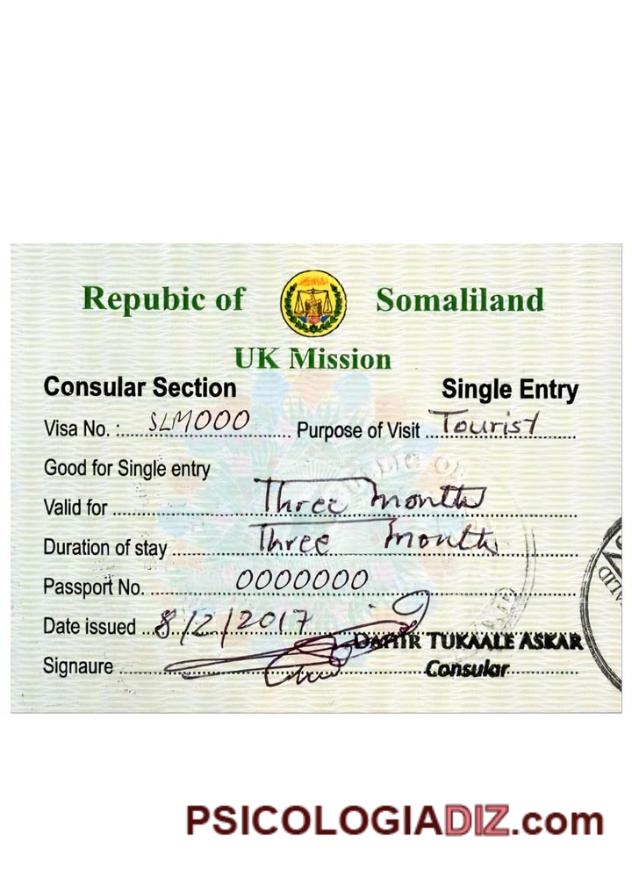 Repubic of Somaliland
UK Mission
Consular Section Single Entry
Visa No. : SLM000 Purpose of Visit Tourist
Good for Single entry
Valid for Three months
Duration of stay Three months
Passport No. 0000000
Date issued 8/2/2017
DAHIR TUKAALE ASKAR
Signaure Consular
PSICOLOGIADIZ.com